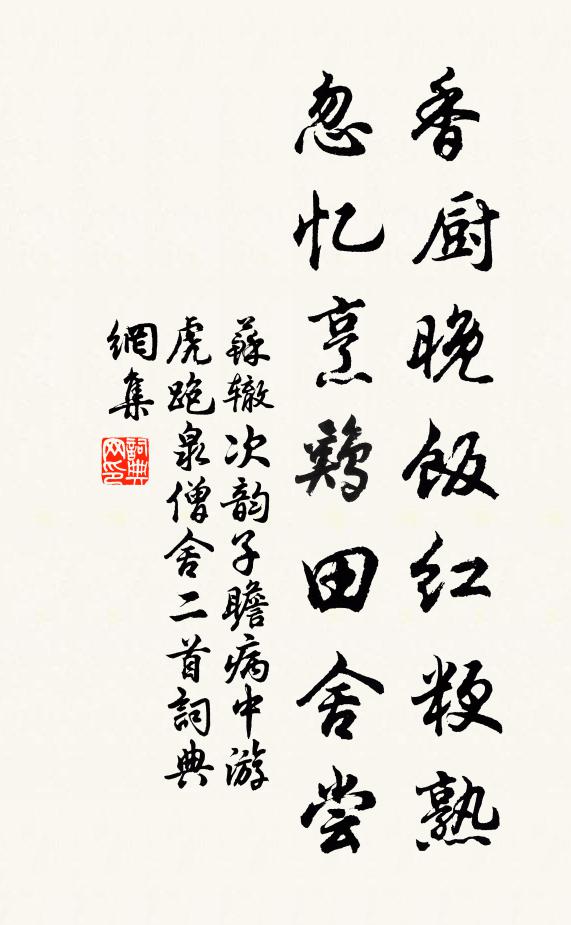 香厨晚饭红粳熟
忽忆烹鸡田舍尝
蘇辙次韵子瞻病中游
虎跑泉僧舍二首詞典
網集
詞典
网印